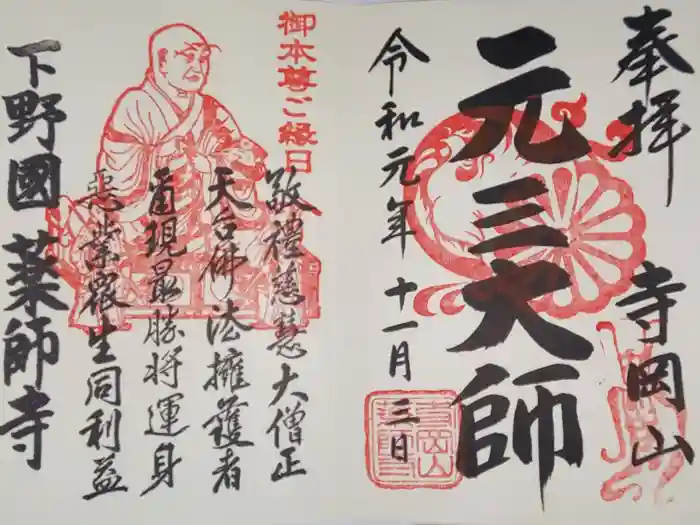 奉拝
寺岡山
元三大師
令和元年十一月三日
御本尊ご縁日
敬禮慈慧大僧正
天台佛法擁護者
當現最勝将運身
惡業衆生同利益
下野國薬師寺